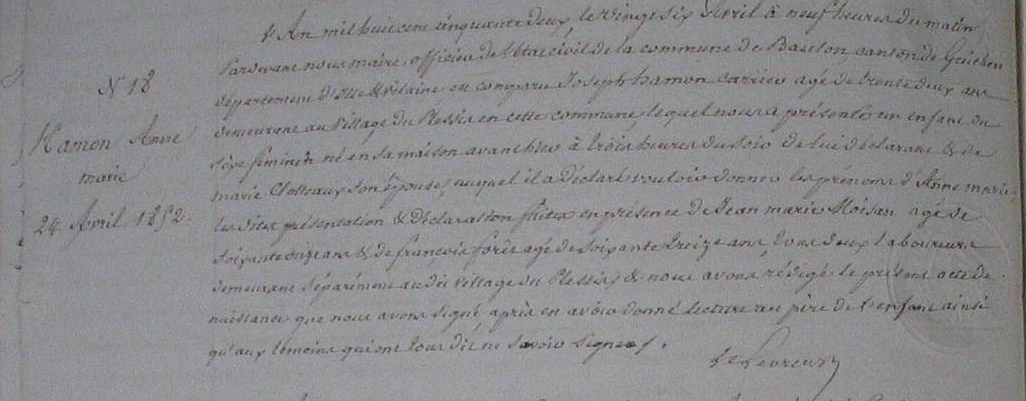 L'An mil huit cent cinquante deux, le vingt six Avril à neuf heures du matin
Pardevant nous maire, officier de l'état civil de la commune de Baulon, canton de Guichen
département d'Ille & Vilaine est comparu Joseph hamon carrier agé de trente deux ans
demeurant au village du Plessis en cette commune, lequel nous a présenté un enfant du
sexe féminin né en sa maison avant hier à trois heures du soir de lui déclarant & de
marie son épouse, auquel il a déclaré vouloir donner les prénoms d'Anne marie
les dites présentation & déclaration faites en présence de Jean marie Moisan agé de
soixante onze ans & de francois agé de soixante treize ans, tous deux laboureurs
demeurant séparément au dit village du Plessis, & nous avons rédigé le présent acte de
naissance que nous avons signé après en avoir donné lecture au père de l'enfant ainsi
qu'aux témoins qui ont tous dit ne savoir signer.
N 18
Hamon Anne
marie
24 Avril 1852.